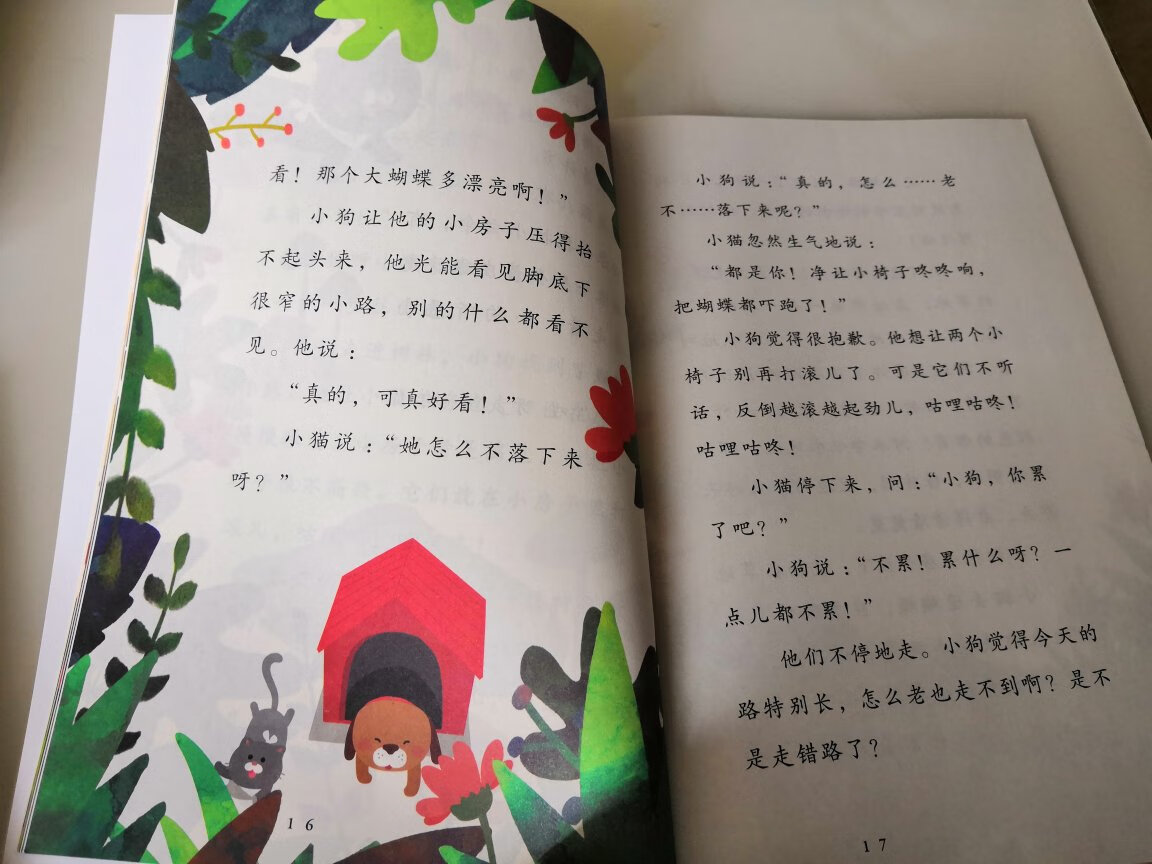 看！那个大蝴蝶多漂亮啊！”
小狗让他的小房子压得抬
不起头来，他光能看见脚底下
很窄的小路，别的什么都看不
见。他说：
“真的，可真好看！”
小猫说：“她怎么不落下来
呀？”
16
小狗说：“真的，怎么……老
不……落下来呢？”
小猫忽然生气地说：
“都是你！净让小椅子咚咚响，
把蝴蝶都吓跑了！”
小狗觉得很抱歉。他想让两个小
椅子别再打滚儿了。可是它们不听
话，反倒越滚越起劲儿，咕哩咕咚！
咕哩咕咚！
小猫停下来，问：“小狗，你累
了吧？”
小狗说：“不累！累什么呀？一
点儿都不累！”
他们不停地走。小狗觉得今天的
路特别长，怎么老也走不到啊？是不
是走错路了？
17